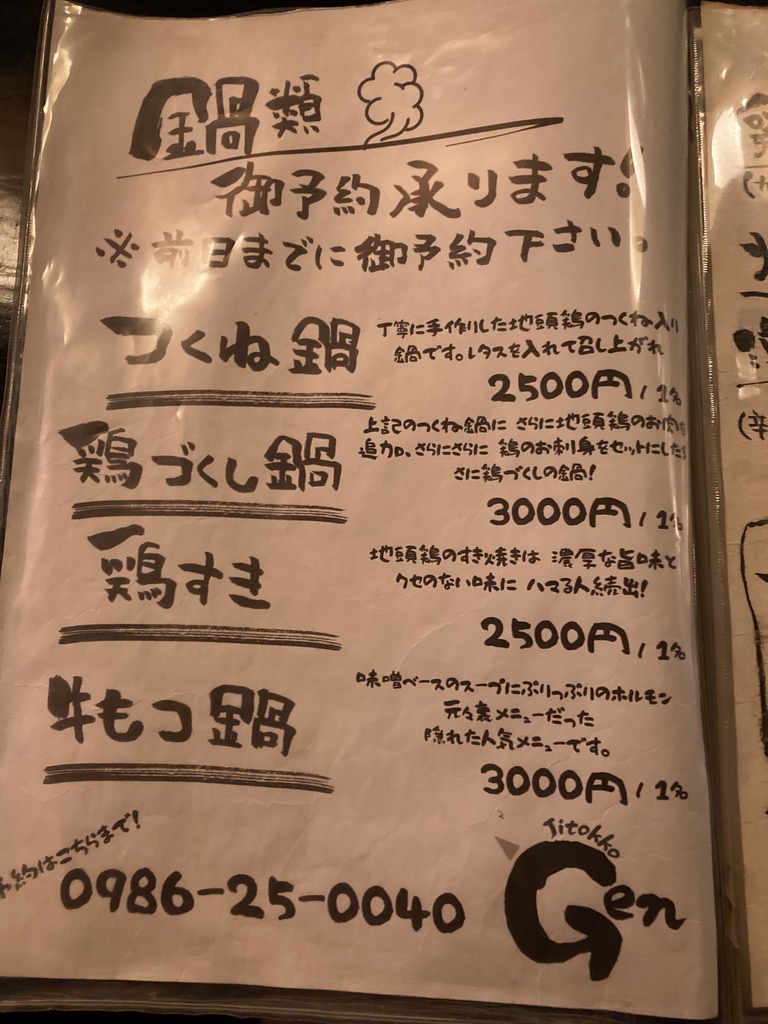 鍋類
御予約承ります!
※前日までに御予約下さい。
つくね鍋
丁寧に手作りした地頭鶏のつくね入り
鍋です。レタスを入れて召し上がれ
2500円/1名
鶏づくし鍋
上記のつくね鍋に さらに地頭鶏のお肉を
追加。さらにさらに 鶏のお刺身をセットにした
さに鶏づくしの鍋!
3000円/1名
鶏すき
地頭鶏のすき焼きは 濃厚な旨味と
クセのない味に ハマる人続出!
2500円/1名
牛もつ鍋
味噌ベースのスープにぷりっぷりのホルモン
元々裏メニューだった
隠れた人気メニューです。
3000円/1名
約はこちらまで!
0986-25-0040
Jitokko
Gen